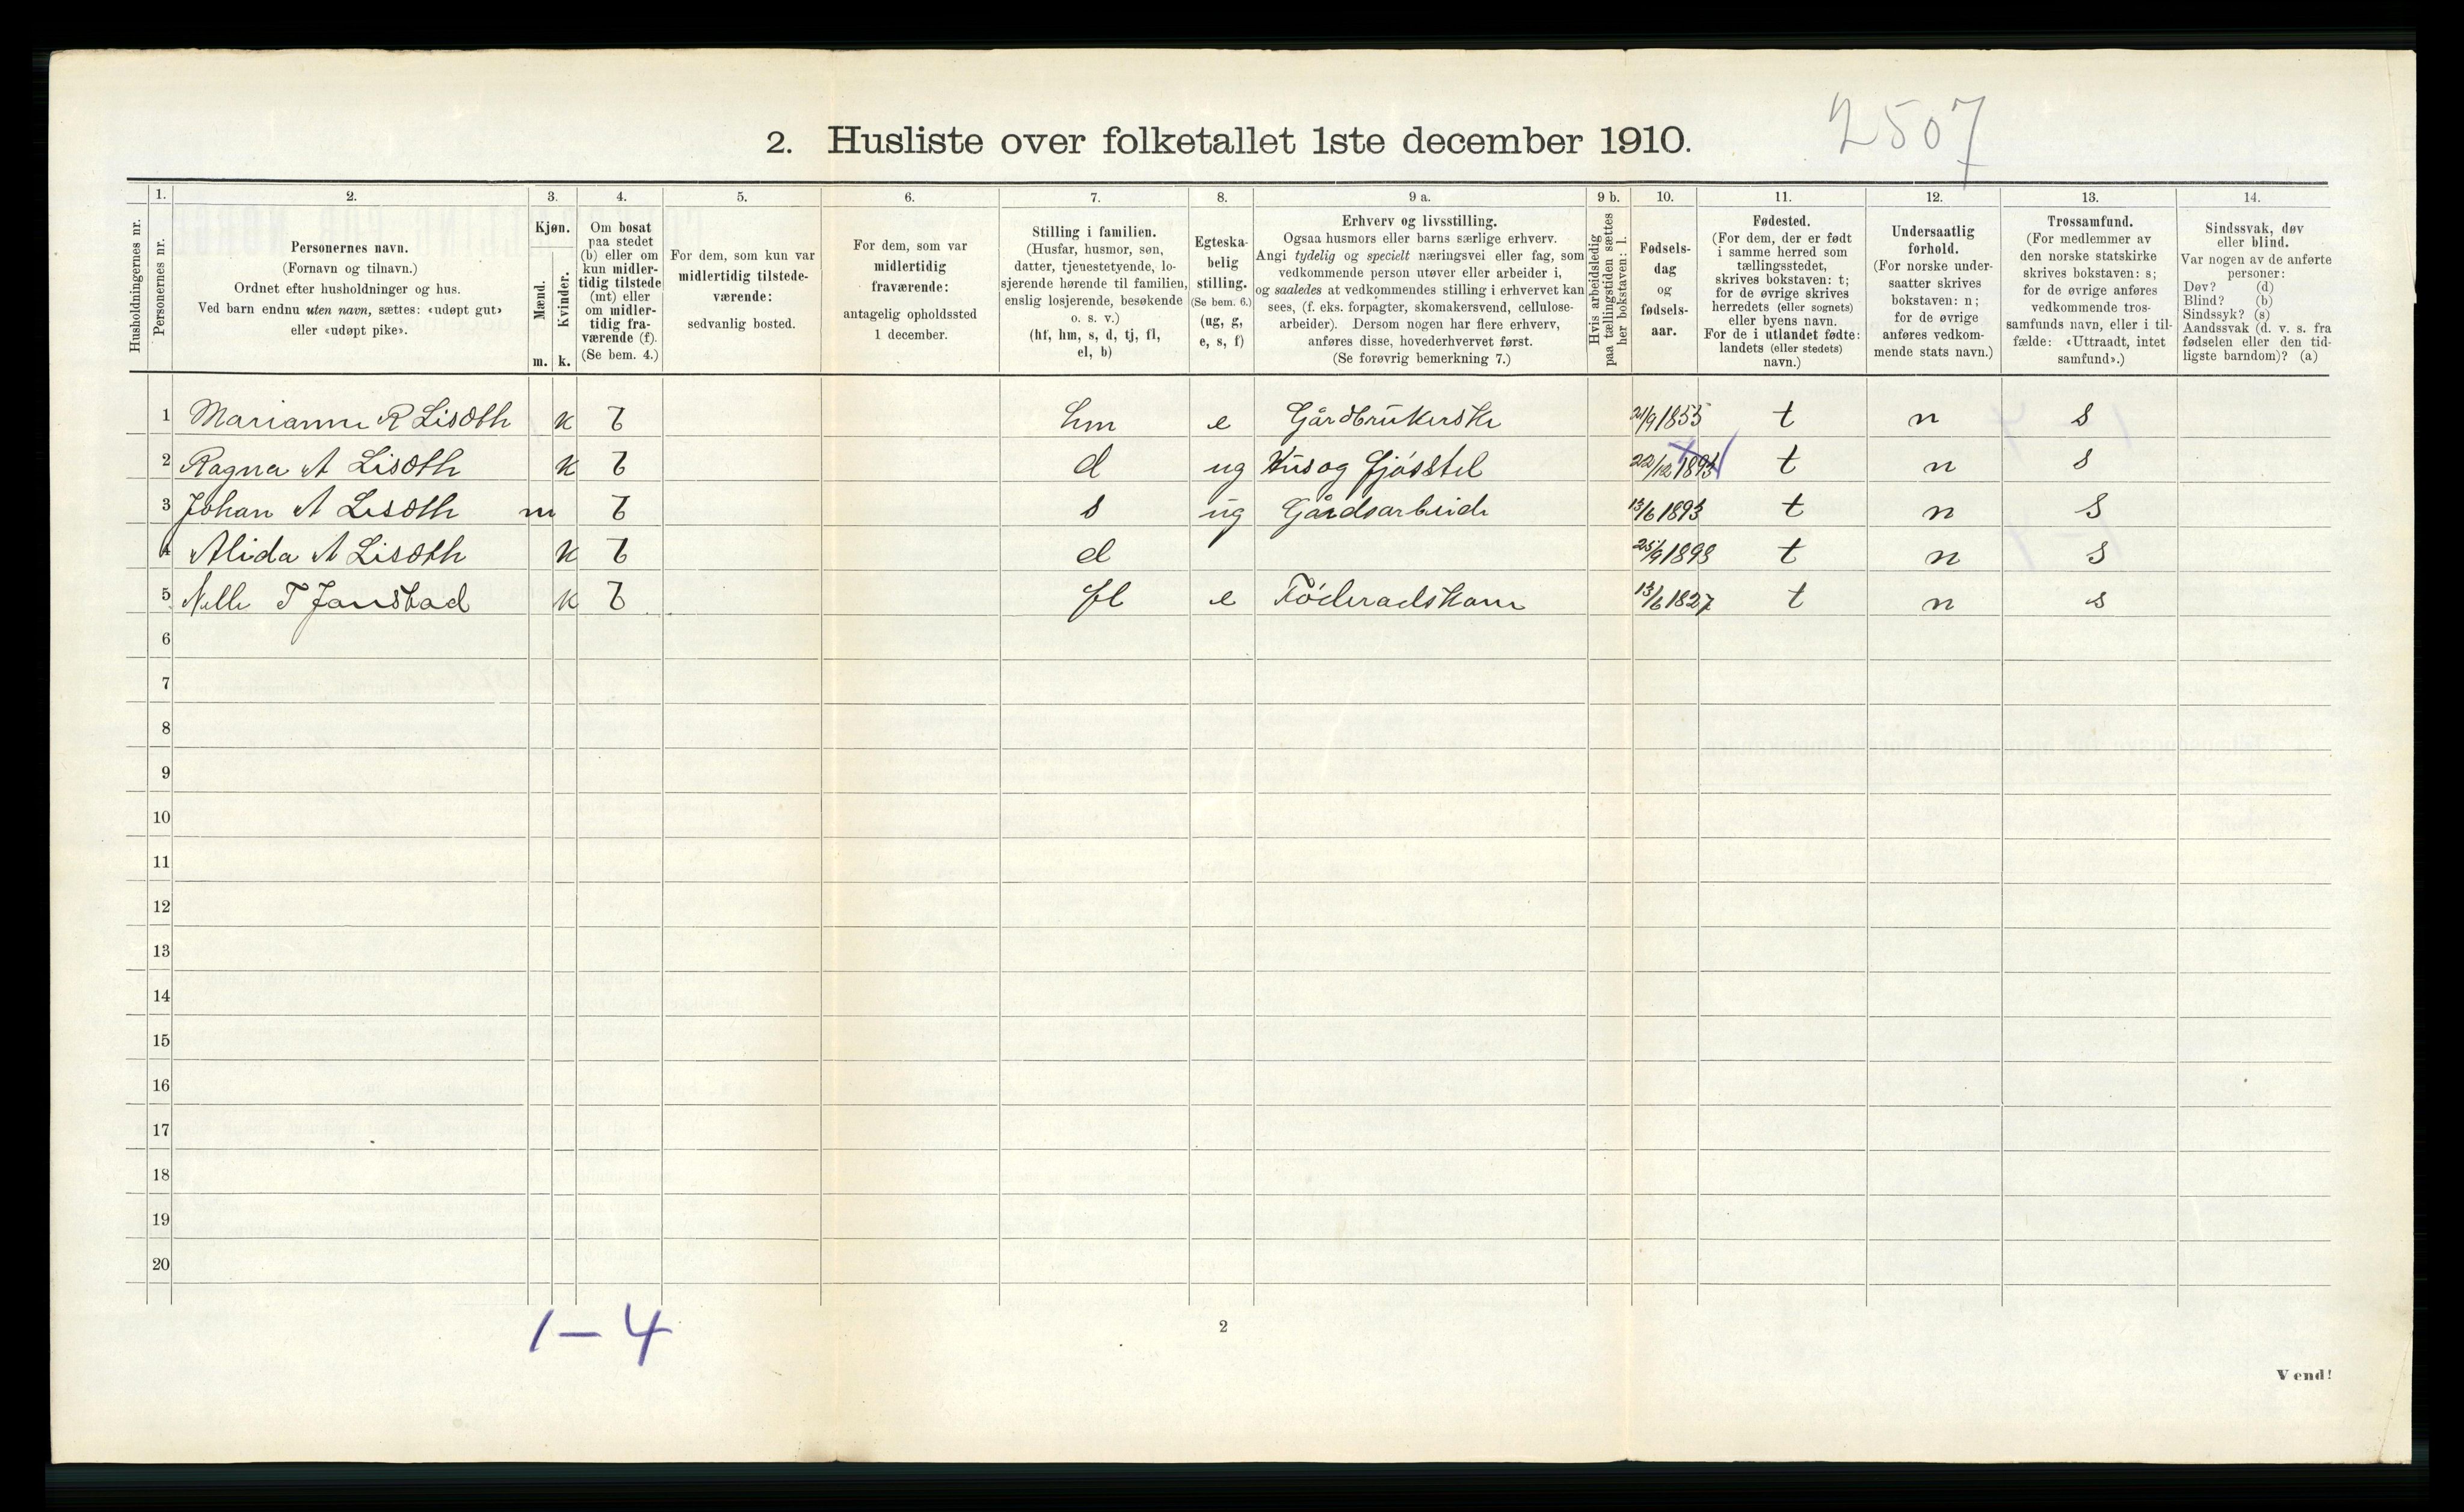 2507
2. Husliste over folketallet 1ste december 1910.
Husholdningernes nr.
1.
Personernes nr.
2.
Personernes navn.
(Fornavn og tilnavn.)
Ordnet efter husholdninger og hus.
Ved barn endnu uten navn, sættes: «udøpt gut»
eller «udøpt pike».
3.
Kjøn.
Mænd.
m.
Kvinder.
k.
4.
Om bosat
paa stedet
(b) eller om
kun midler-
tidig tilstede
(mt) eller
om midler-
tidig fra-
værende (f).
(Se bem. 4.)
5.
For dem, som kun var
midlertidig tilstede-
værende:
sedvanlig bosted.
6.
For dem, som var
midlertidig
fraværende:
antagelig opholdssted
1 december.
7.
Stilling i familien.
(Husfar, husmor, søn,
datter, tjenestetyende, lo-
sjerende hørende til familien,
enslig losjerende, besøkende
o. s. v.)
(hf, hm, s, d, tj, fl,
el, b)
8.
Egteska-
belig
stilling.
(Se bem. 6.)
(ug, g,
e, s, f)
9 a.
Erhverv og livsstilling.
Ogsaa husmors eller barns særlige erhverv.
Angi tydelig og specielt næringsvei eller fag, som
vedkommende person utøver eller arbeider i,
og saaledes at vedkommendes stilling i erhvervet kan
sees, (f. eks. forpagter, skomakersvend, cellulose-
arbeider). Dersom nogen har flere erhverv,
anføres disse, hovederhvervet først.
(Se forøvrig bemerkning 7.)
9 b.
Hvis arbeidsledig
paa tællingstiden sættes
her bokstaven: l.
10.
Fødsels-
dag
og
fødsels-
aar.
11.
Fødested.
(For dem, der er født
i samme herred som
tællingsstedet,
skrives bokstaven: t;
for de øvrige skrives
herredets (eller sognets)
eller byens navn.
For de i utlandet fødte:
landets (eller stedets)
navn.)
12.
Undersaatlig
forhold.
(For norske under-
saatter skrives
bokstaven: n;
for de øvrige
anføres vedkom-
mende stats navn.)
13.
Trossamfund.
(For medlemmer av
den norske statskirke
skrives bokstaven: s;
for de øvrige anføres
vedkommende tros-
samfunds navn, eller i til-
fælde: «Uttraadt, intet
samfund».)
14.
Sindssvak, døv
eller blind.
Var nogen av de anførte
personer:
Døv? (d)
Blind? (b)
Sindssyk? (s)
Aandssvak (d. v. s. fra
fødselen eller den tid-
ligste barndom)? (a)
1 Marianne R Lisøth k b hm e Gårdbrukerske 21/9 1855 t n s
2 Ragna A Lisøth k b d ug Hus og fjøsstel 22/12 t n s
3 Johan A Lisøth m b s ug Gårdsarbeide 13/6 1893 t n s
4 Alida A Lisøth k b d 25/9 1898 t n s
5 T Janstad k b fl e Føderadskone 13/6 1827 t n s
6
7
8
9
10
11
12
13
14
15
16
17
18
19
20
1-4
2
Vend!